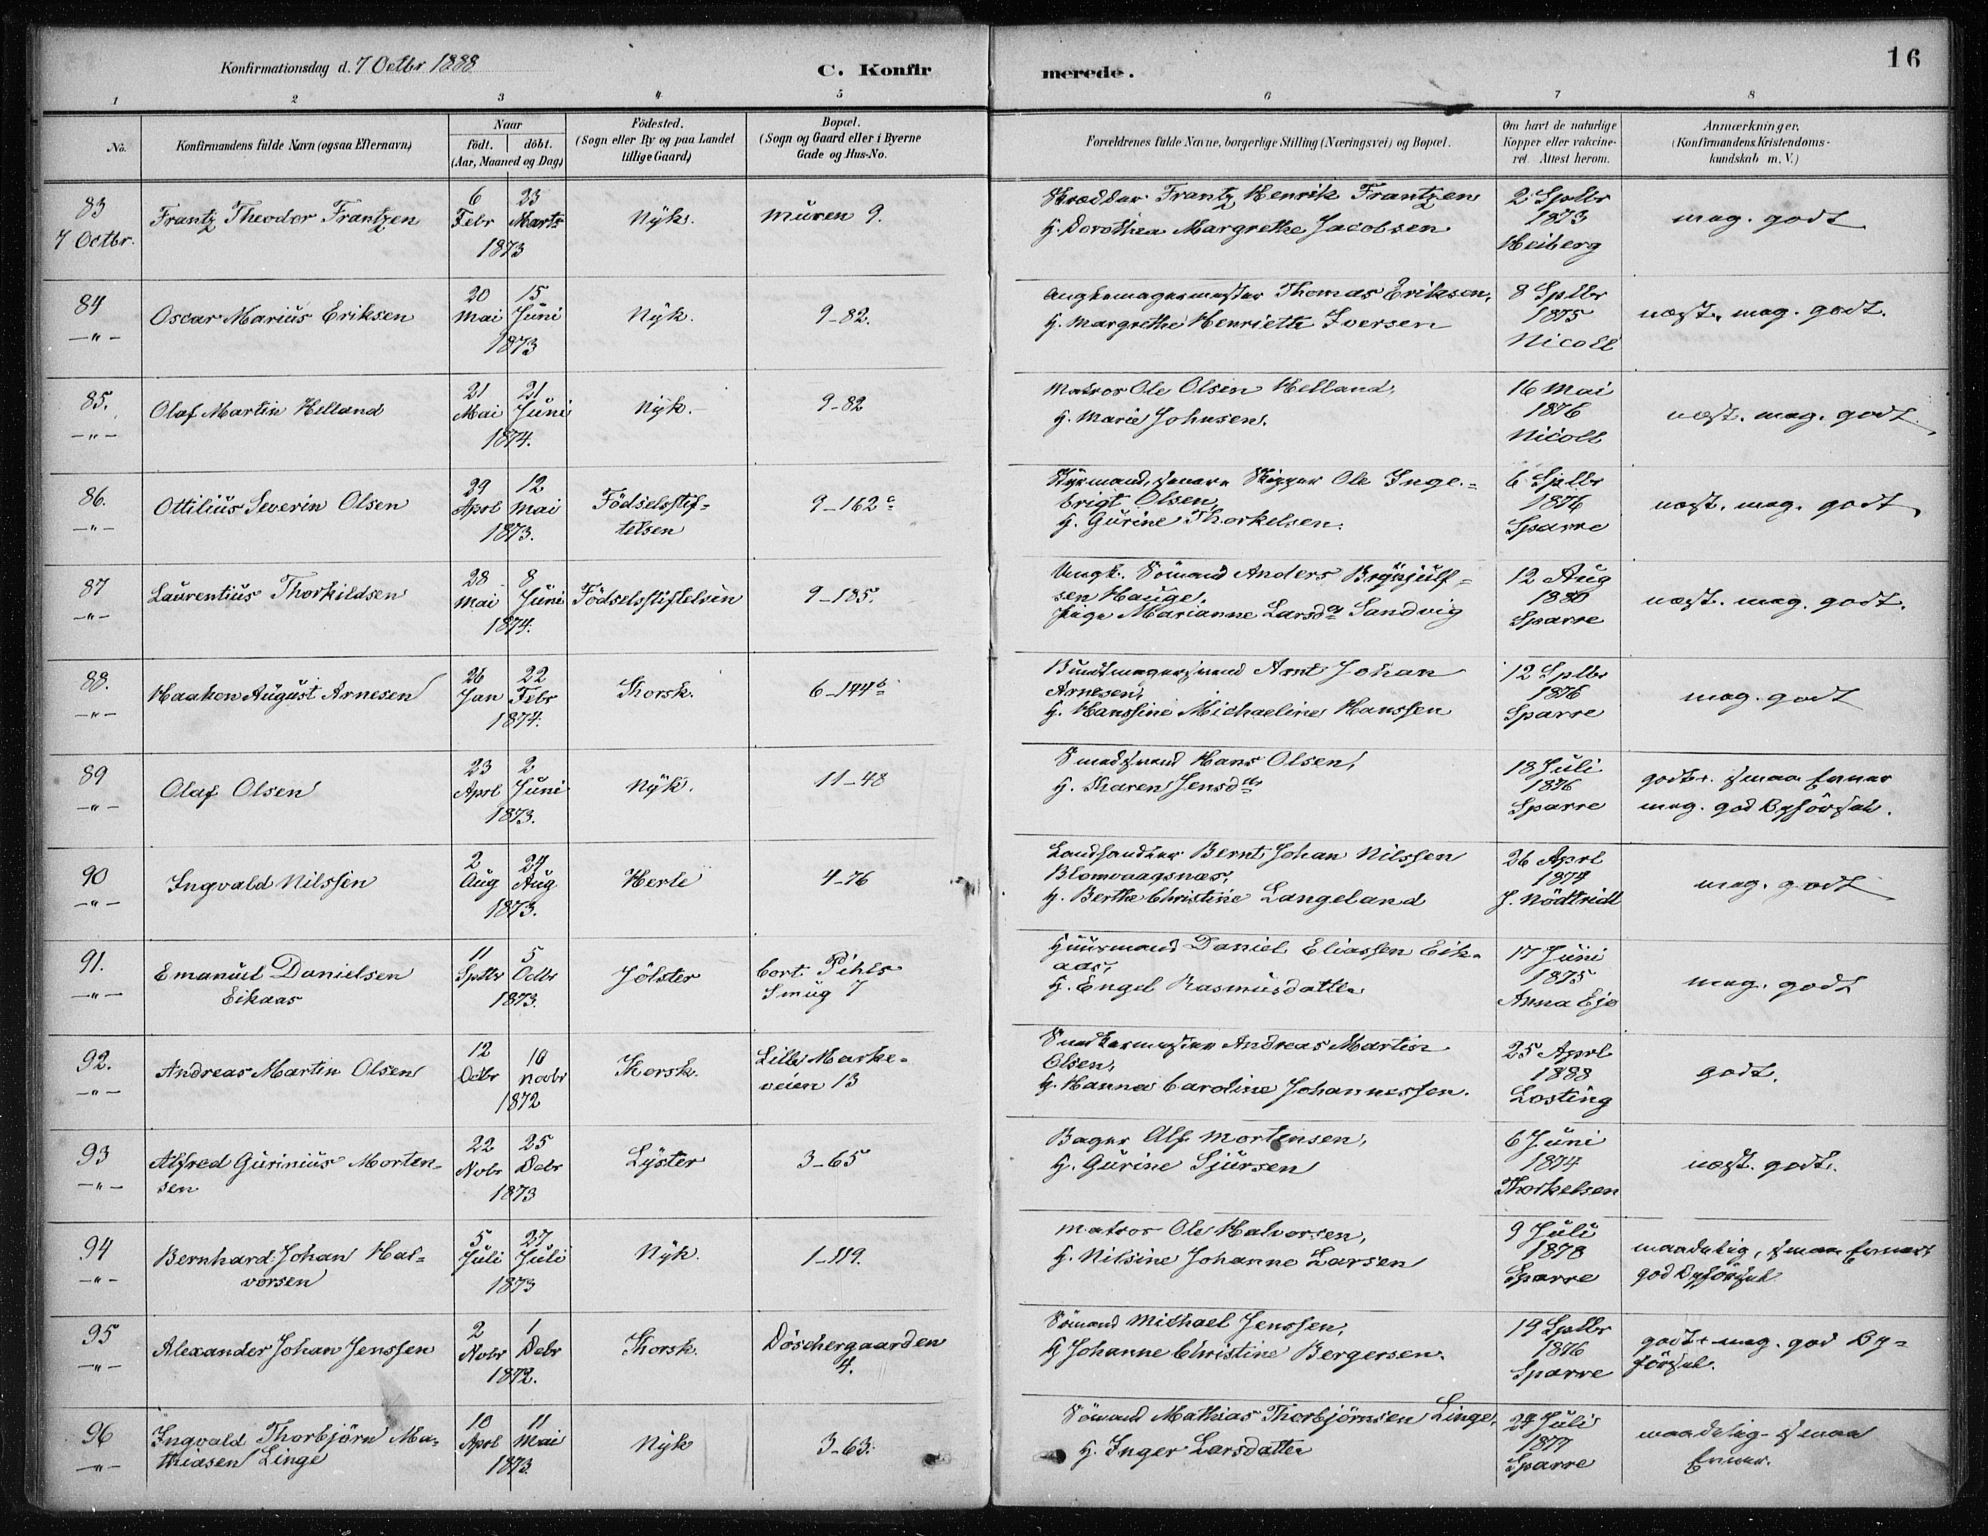 Konfirmationsdag d. 7 Octbr 1888
C. Konfirmerede.
16
1 2 3 4 5 6 7 8
No.
Konfirmandens fulde Navn (ogsaa Efternavn)
Naar
födt. döbt.
(Aar, Maaned og Dag)
Födested.
(Sogn eller By og paa Landet
tillige Gaard)
Bopæl.
(Sogn og Gaard eller i Byerne
Gade og Hus-No.
Forældrenes fulde Navne, borgerlige Stilling (Næringsvei) og Bopæl.
Om havt de naturlige
Kopper eller vakcine-
ret. Attest herom.
Anmærkninger.
(Konfirmandens Kristendoms-
kundskab m. V.)
83
7 Octbr.
Frantz Theodor Frantzen
6 23
Febr Marts
1873
Nÿk.
Muren 9.
Skrædder Frantz Henrik Frantzen
H. Dorothea Margrethe Jacobsen
2 Sptbr
1873
Heiberg
mag. godt
84
—"—
Oscar Marius Eriksen
20 15
Mai Juni
1873
Nÿk.
9-82.
Thomas Eriksen,
H. Margrethe Henriette Iversen
8 Sptbr
1875
Nicoll
næst. mag. godt.
85.
—"—
Olaf Martin Helland
21 21
Mai Juni
1874.
Nÿk.
9-82
Matros Ole Olsen Helland,
H. Marie Johnsen.
16 Mai
1876
Nicoll
næst. mag. godt.
86.
—"—
Ottilius Severin Olsen
29 12
Aprl Mai
1873.
Födselsstif-
telsen
9-162c
Styrmand, senere Skipper Ole Inge-
brigt Olsen,
H. Gurine Thorkelsen.
6 Sptbr
1876
Sparre
næst. mag. godt
87
—"—
Laurentius Thorkildsen
28 8
Mai Juni
1874.
Födselsstiftelsen
9-185.
Ungk. Sömand Anders Brynjulf-
sen Hauge,
Pige Marianne Larsda Sandvig
12 Aug
1880
Sparre
næst. mag. godt.
88.
—"—
Haakon August Arnesen
26 22
Jan Febr
1874.
Korsk.
6-144b
Bundtmagersvend Arnt Johan
Arnesen,
H. Hanssine Michaeline Hanssen
12 Sptbr
1876
Sparre
mag. godt
89
—"—
Olaf Olsen
23 2
Aprl Juni
1873.
Nÿk.
11-48
Smedsvend Hans Olsen,
H. Maren Jensdr
18 Juli
1876
Sparre
godt. smaa Evner
mag. god Opförsel.
90
—"—
Ingvald Nilssen
2 24
Aug Aug
1873.
Herle
4-76
Landhandler Bernt Johan Nilssen
Blomvaagsnæs,
H. Berthe Christine Langeland
26 Aprl
1874
J. Nödtvidt
mag. godt
91.
—"—
Emanuel Danielsen
Eikaas
11 5
Sptbr Octbr
1873.
Jölster
Cort Pihls
Smug 7
Huusmand Daniel Eliassen Eik-
aas,
H. Engel Rasmusdatter
17 Juni
1875
Anna Eje
mag. godt
92.
—"—
Andreas Martin Olsen
12 10
Octbr Novbr
1872
Korsk.
Lille Marke-
veien 13
Andreas Martin
Olsen,
H. Hanna Caroline Johannessen.
25 Aprl
1888
Losting
godt.
93
—"—
Alfred Gurinius Morten-
sen
22 25
Novbr Decbr
1873
Lÿster
3-65
Bager Alf Mortensen,
H. Gurine Sjursen
6 Juni
1874
Thorkelsen
næst. godt.
94
—"—
Bernhard Johan Hal-
vorsen
5 27
Juli Juli
1873
Nÿk.
1-119.
Matros Ole Halvorsen,
H. Nilsine Johanne Larsen
9 Juli
1878
Sparre
maadelig, smaa Evner
god Opförsel
95
—"—
Alexander Johan Jenssen
2 1
Novbr Decbr
1872.
Korsk.
Döschergaarden
4.
Sömand Michael Jenssen,
H Johanne Christine Bergersen.
19 Sptbr
1876
Sparre
godt mag. god Op-
försel.
96
—"—
Ingvald Thorbjörn Ma-
thiasen Linge
10 11
Aprl Mai
1873.
Nÿk
3-63.
Sömand Mathias Thorbjörnsen Linge,
H. Inger Larsdatter
24 Juli
1877
Sparre
maadelig smaa
Evner.